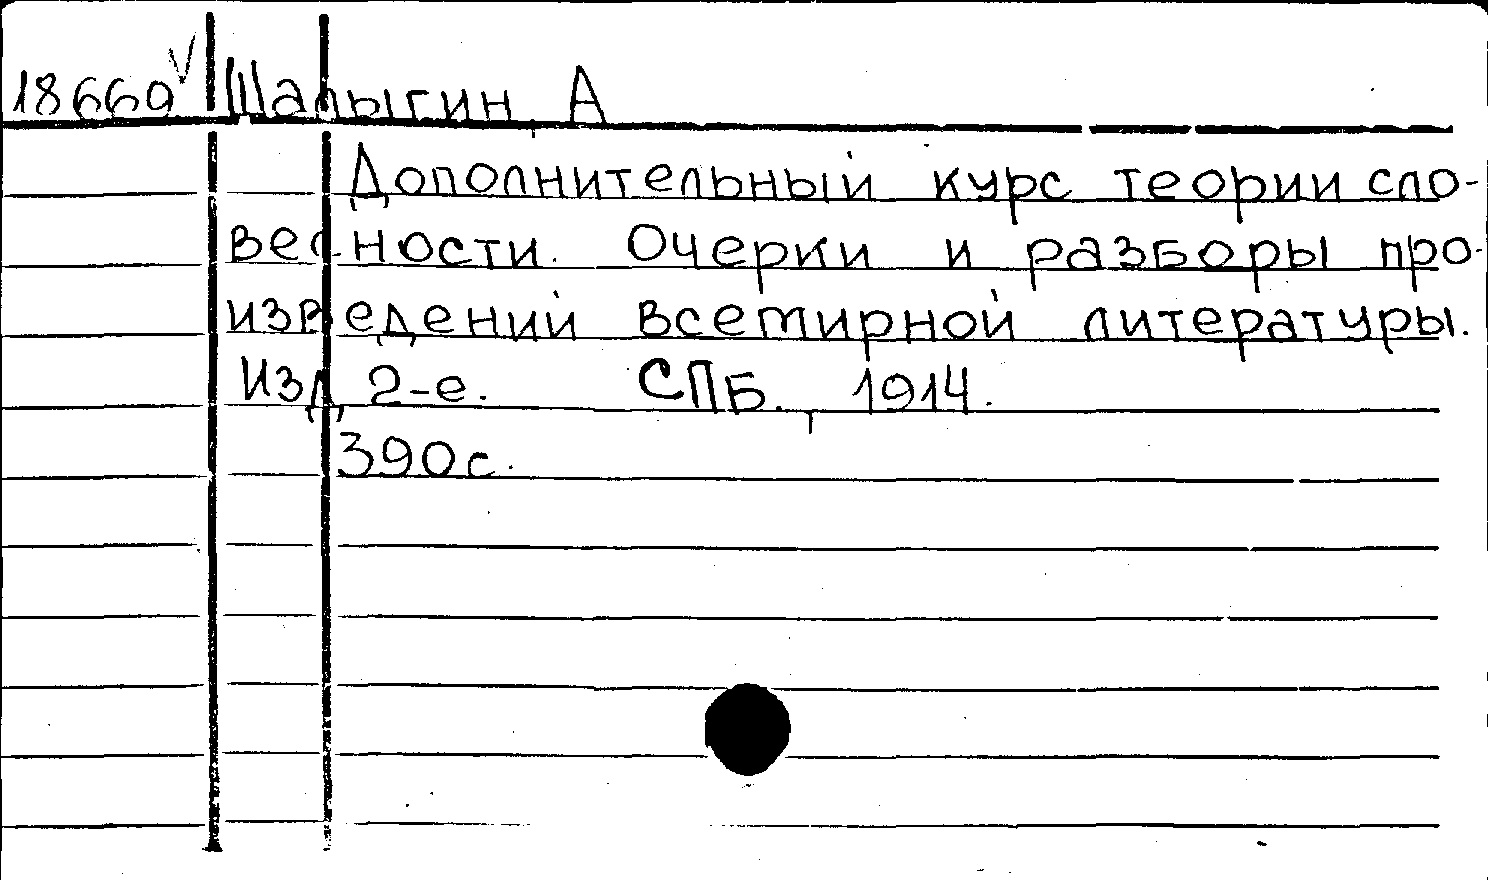 18669 V Шалыгин, А
Дополнительный курс теории сло-
весности. Очерки и разборы про-
изведений всемирной литературы.
Изд, 2-е. СПБ., 1914.
390с.